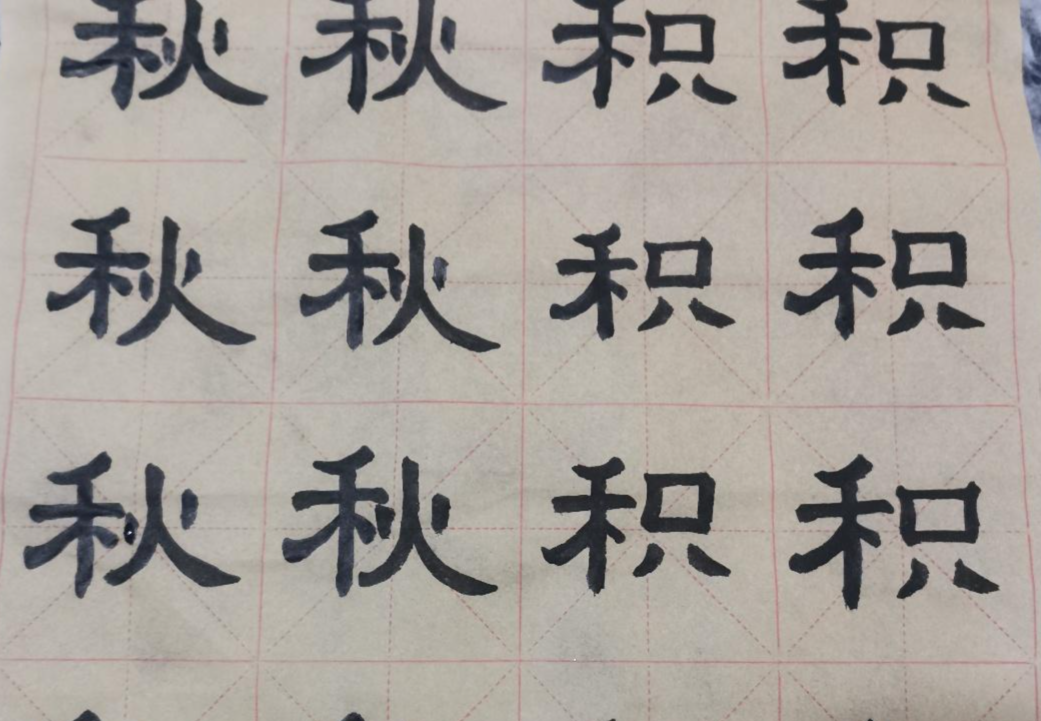 秋秋积积
秋秋积积
秋秋积积